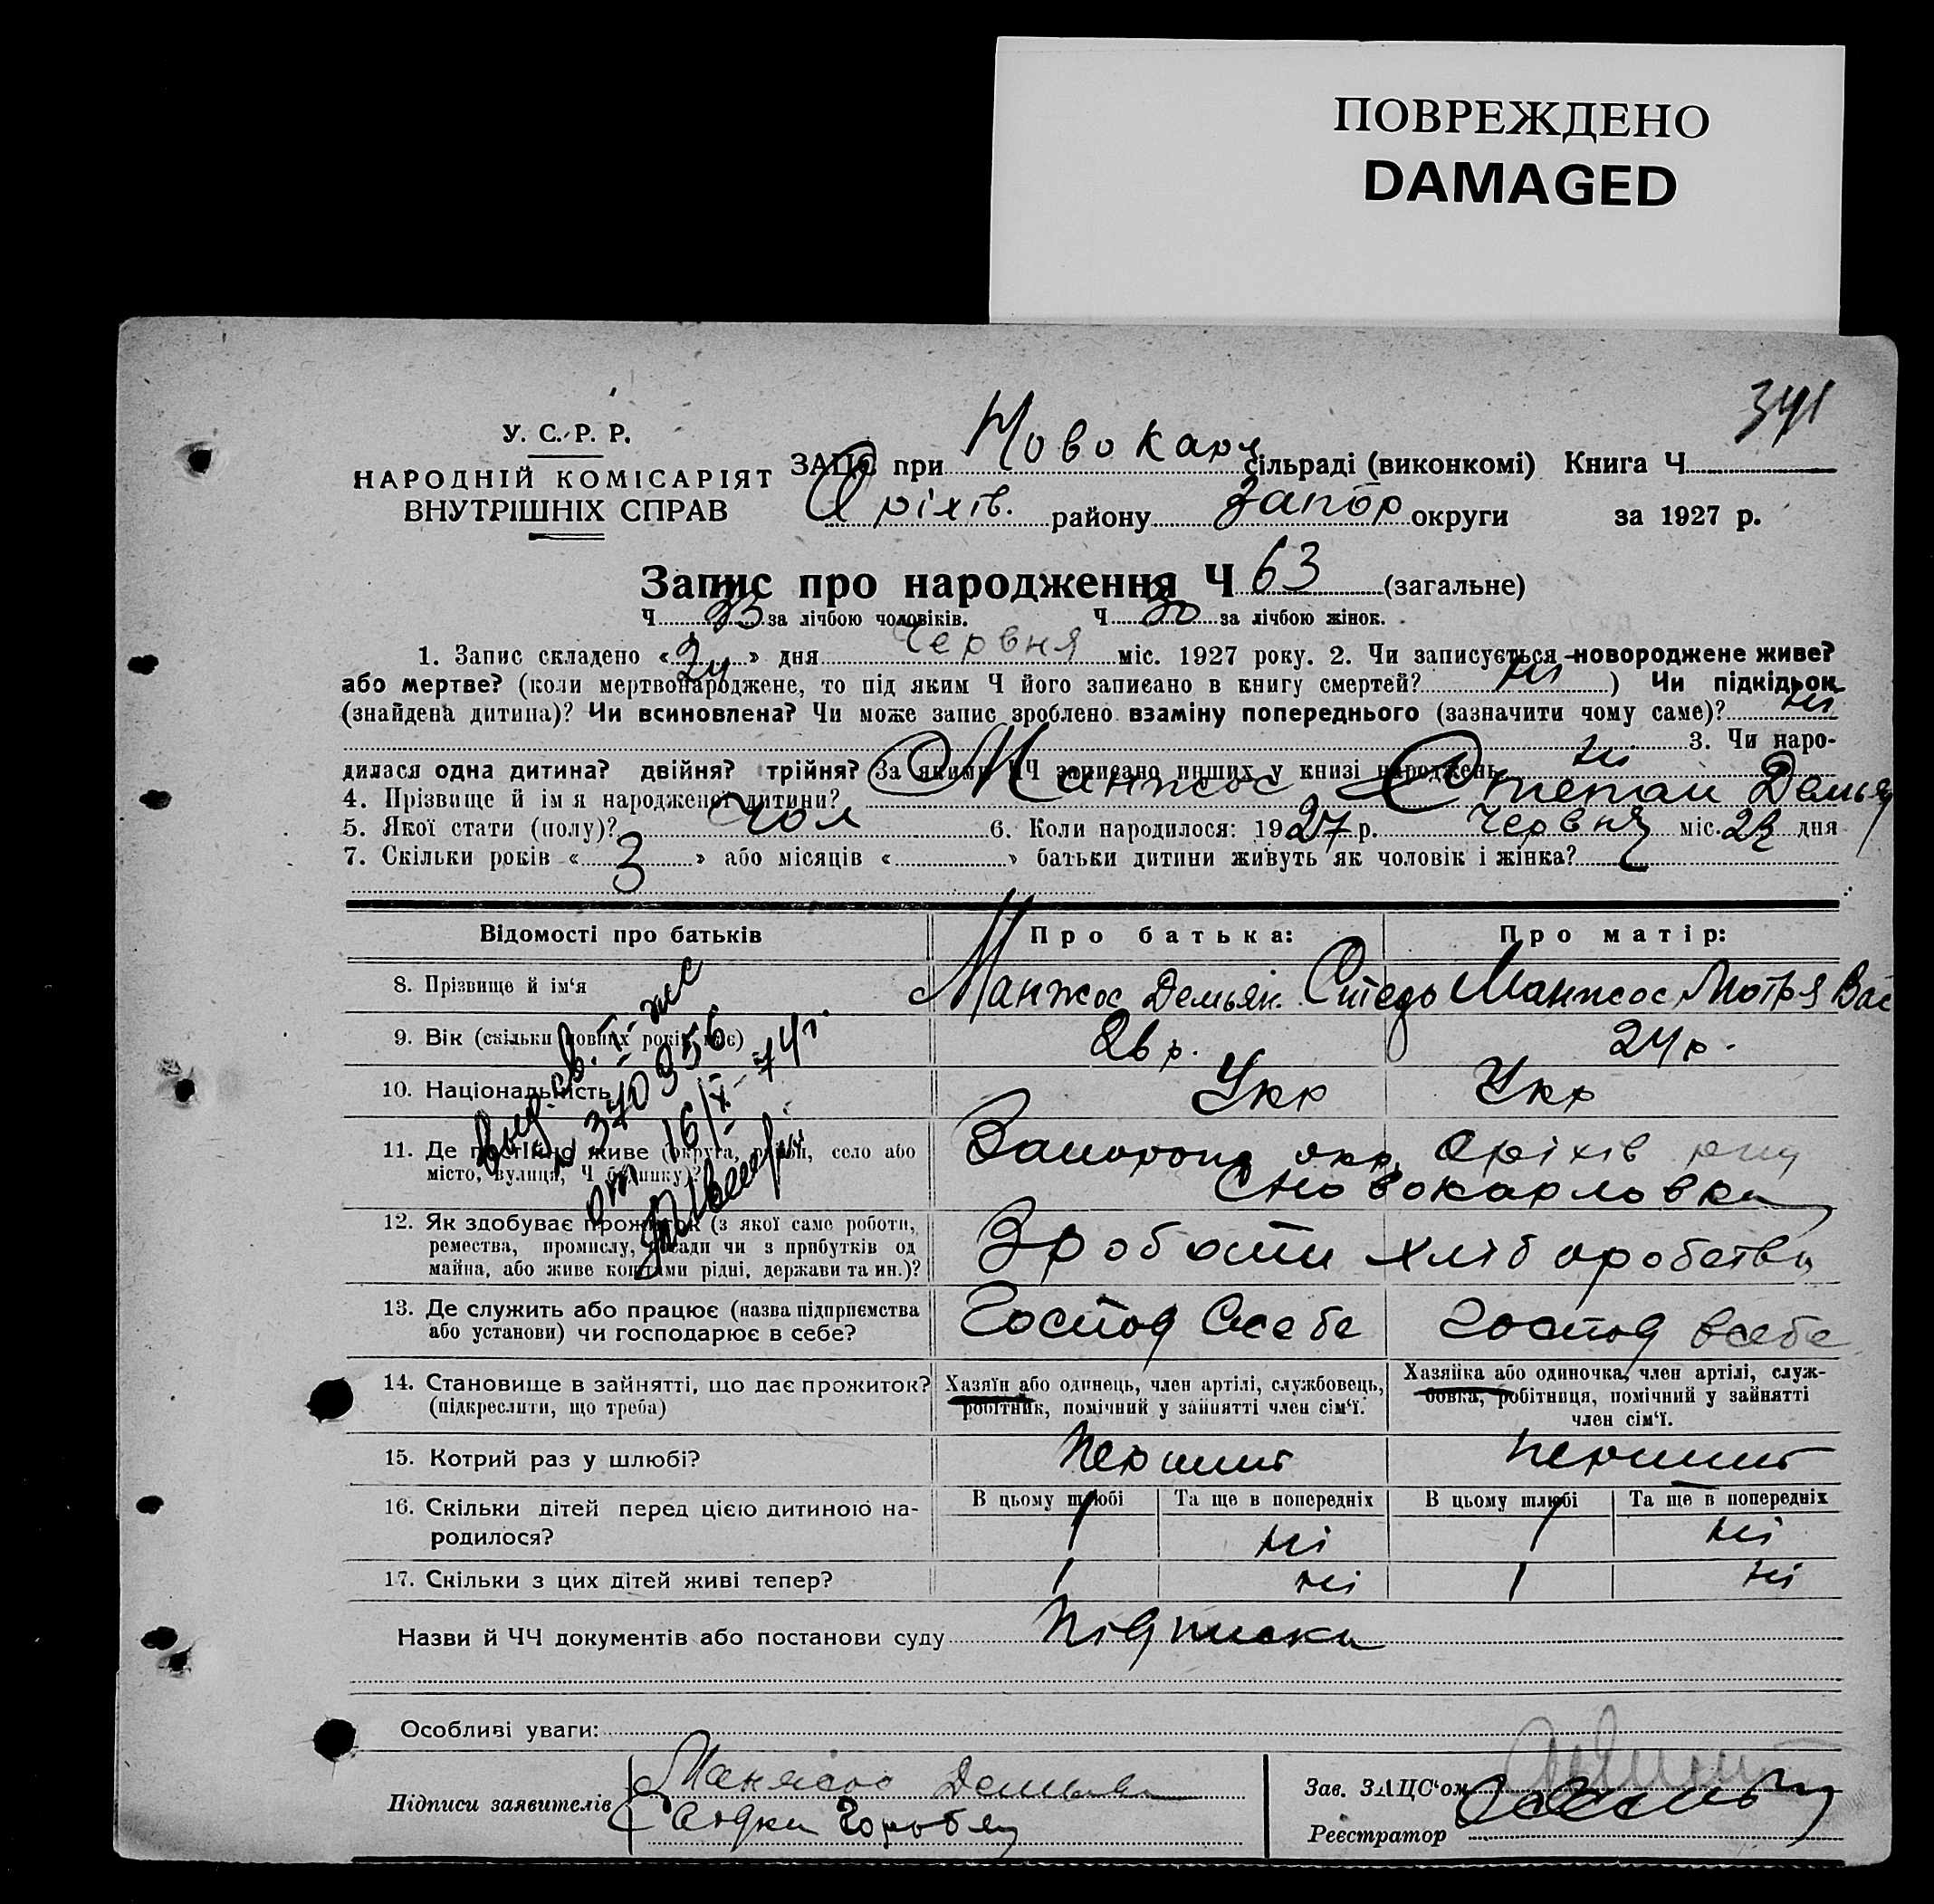 ПОВРЕЖДЕНО
DAMAGED
341
У. С. Р. Р.
НАРОДНІЙ КОМІСАРІЯТ
ВНУТРІШНІХ СПРАВ
ЗАПС при Новокарл сільраді (виконкомі) Книга Ч
Оріхів. району Запор округи за 1927 р.
Запис про народження Ч 63 (загальне)
Ч 33 за лічбою чоловіків. Ч 30 за лічбою жінок.
1. Запис складено « 24 » дня Червня міс. 1927 року. 2. Чи записується новороджене живе?
або мертве? (коли мертвонароджене, то під яким Ч його записано в книгу смертей? ні ) Чи підкідьок
(знайдена дитина)? Чи всиновлена? Чи може запис зроблено взаміну попереднього (зазначити чому саме)? ні
3. Чи наро-
дилася одна дитина? двійня? трійня? За якими ЧЧ записано инших у книзі народжень ні
4. Прізвище й ім я народженої дитини? Манжос Степан Демья
5. Якої стати (полу)? Чол 6. Коли народилося: 1927 р. Червня міс. 23 дня
7. Скільки років « 3 » або місяців « » батьки дитини живуть як чоловік і жінка?
Відомості про батьків Про батька: Про матір:
8. Прізвище й ім'я Манжос Демьян. Манжос Мотря Вас
9. Вік (скільки повних років має) 26 р. 24 р.
10. Національність Укр Укр
11. Де постійно живе (округа, район, село або
місто, вулиця, Ч будинку)?
окр, Оріхів рну
С Новокарловка
12. Як здобуває прожиток (з якої саме роботи,
ремества, промислу, посади чи з прибутків од
майна, або живе коштами рідні, держави та ин.)?
Зроботи хліборобства
13. Де служить або працює (назва підприємства
або установи) чи господарює в себе?
Господ Всебе Господ всебе
14. Становище в зайнятті, що дає прожиток?
(підкреслити, що треба)
Хазяїн або одинець, член артілі, службовець,
робітник, помічний у зайнятті член сім'ї.
Хазяйка або одиночка, член артілі, служ-
бовка, робітниця, помічний у зайнятті
член сім'ї.
15. Котрий раз у шлюбі? Перший Перший
16. Скільки дітей перед цією дитиною на-
родилося?
В цьому шлюбі Та ще в попередніх В цьому шлюбі Та ще в попередніх
1 ні 1 ні
17. Скільки з цих дітей живі тепер? 1 ні 1 ні
Назви й ЧЧ документів або постанови суду Підписка
Особливі уваги:
Підписи заявителів Манжос Демьян
Зав. ЗАЦС'ом
Реєстратор
Выд. св. I-жс
N 370956
от 16/X-74 г.